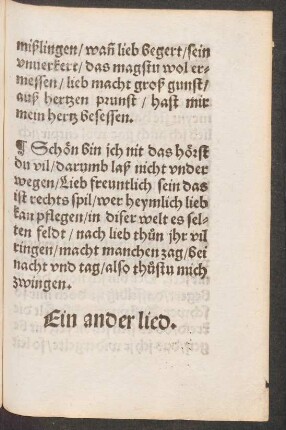 mißlingen/wañ lieb begert/sein
vnuerkert/das magstu wol er-
messen/lieb macht groß gunst/
auß hertzen prunst/hast mir
mein hertz besessen.
¶ Schön bin ich nit das hörst
du vil/darumb laß nicht vnder
wegen/Lieb freuntlich sein das
ist rechts spil/wer heymlich lieb
kan pflegen/in diser welt es sel-
ten feldt/nach lieb thůn jhr vil
ringen/macht manchen zag/bei
nacht vnd tag/also thůstu mich
zwingen.
Ein ander lied.